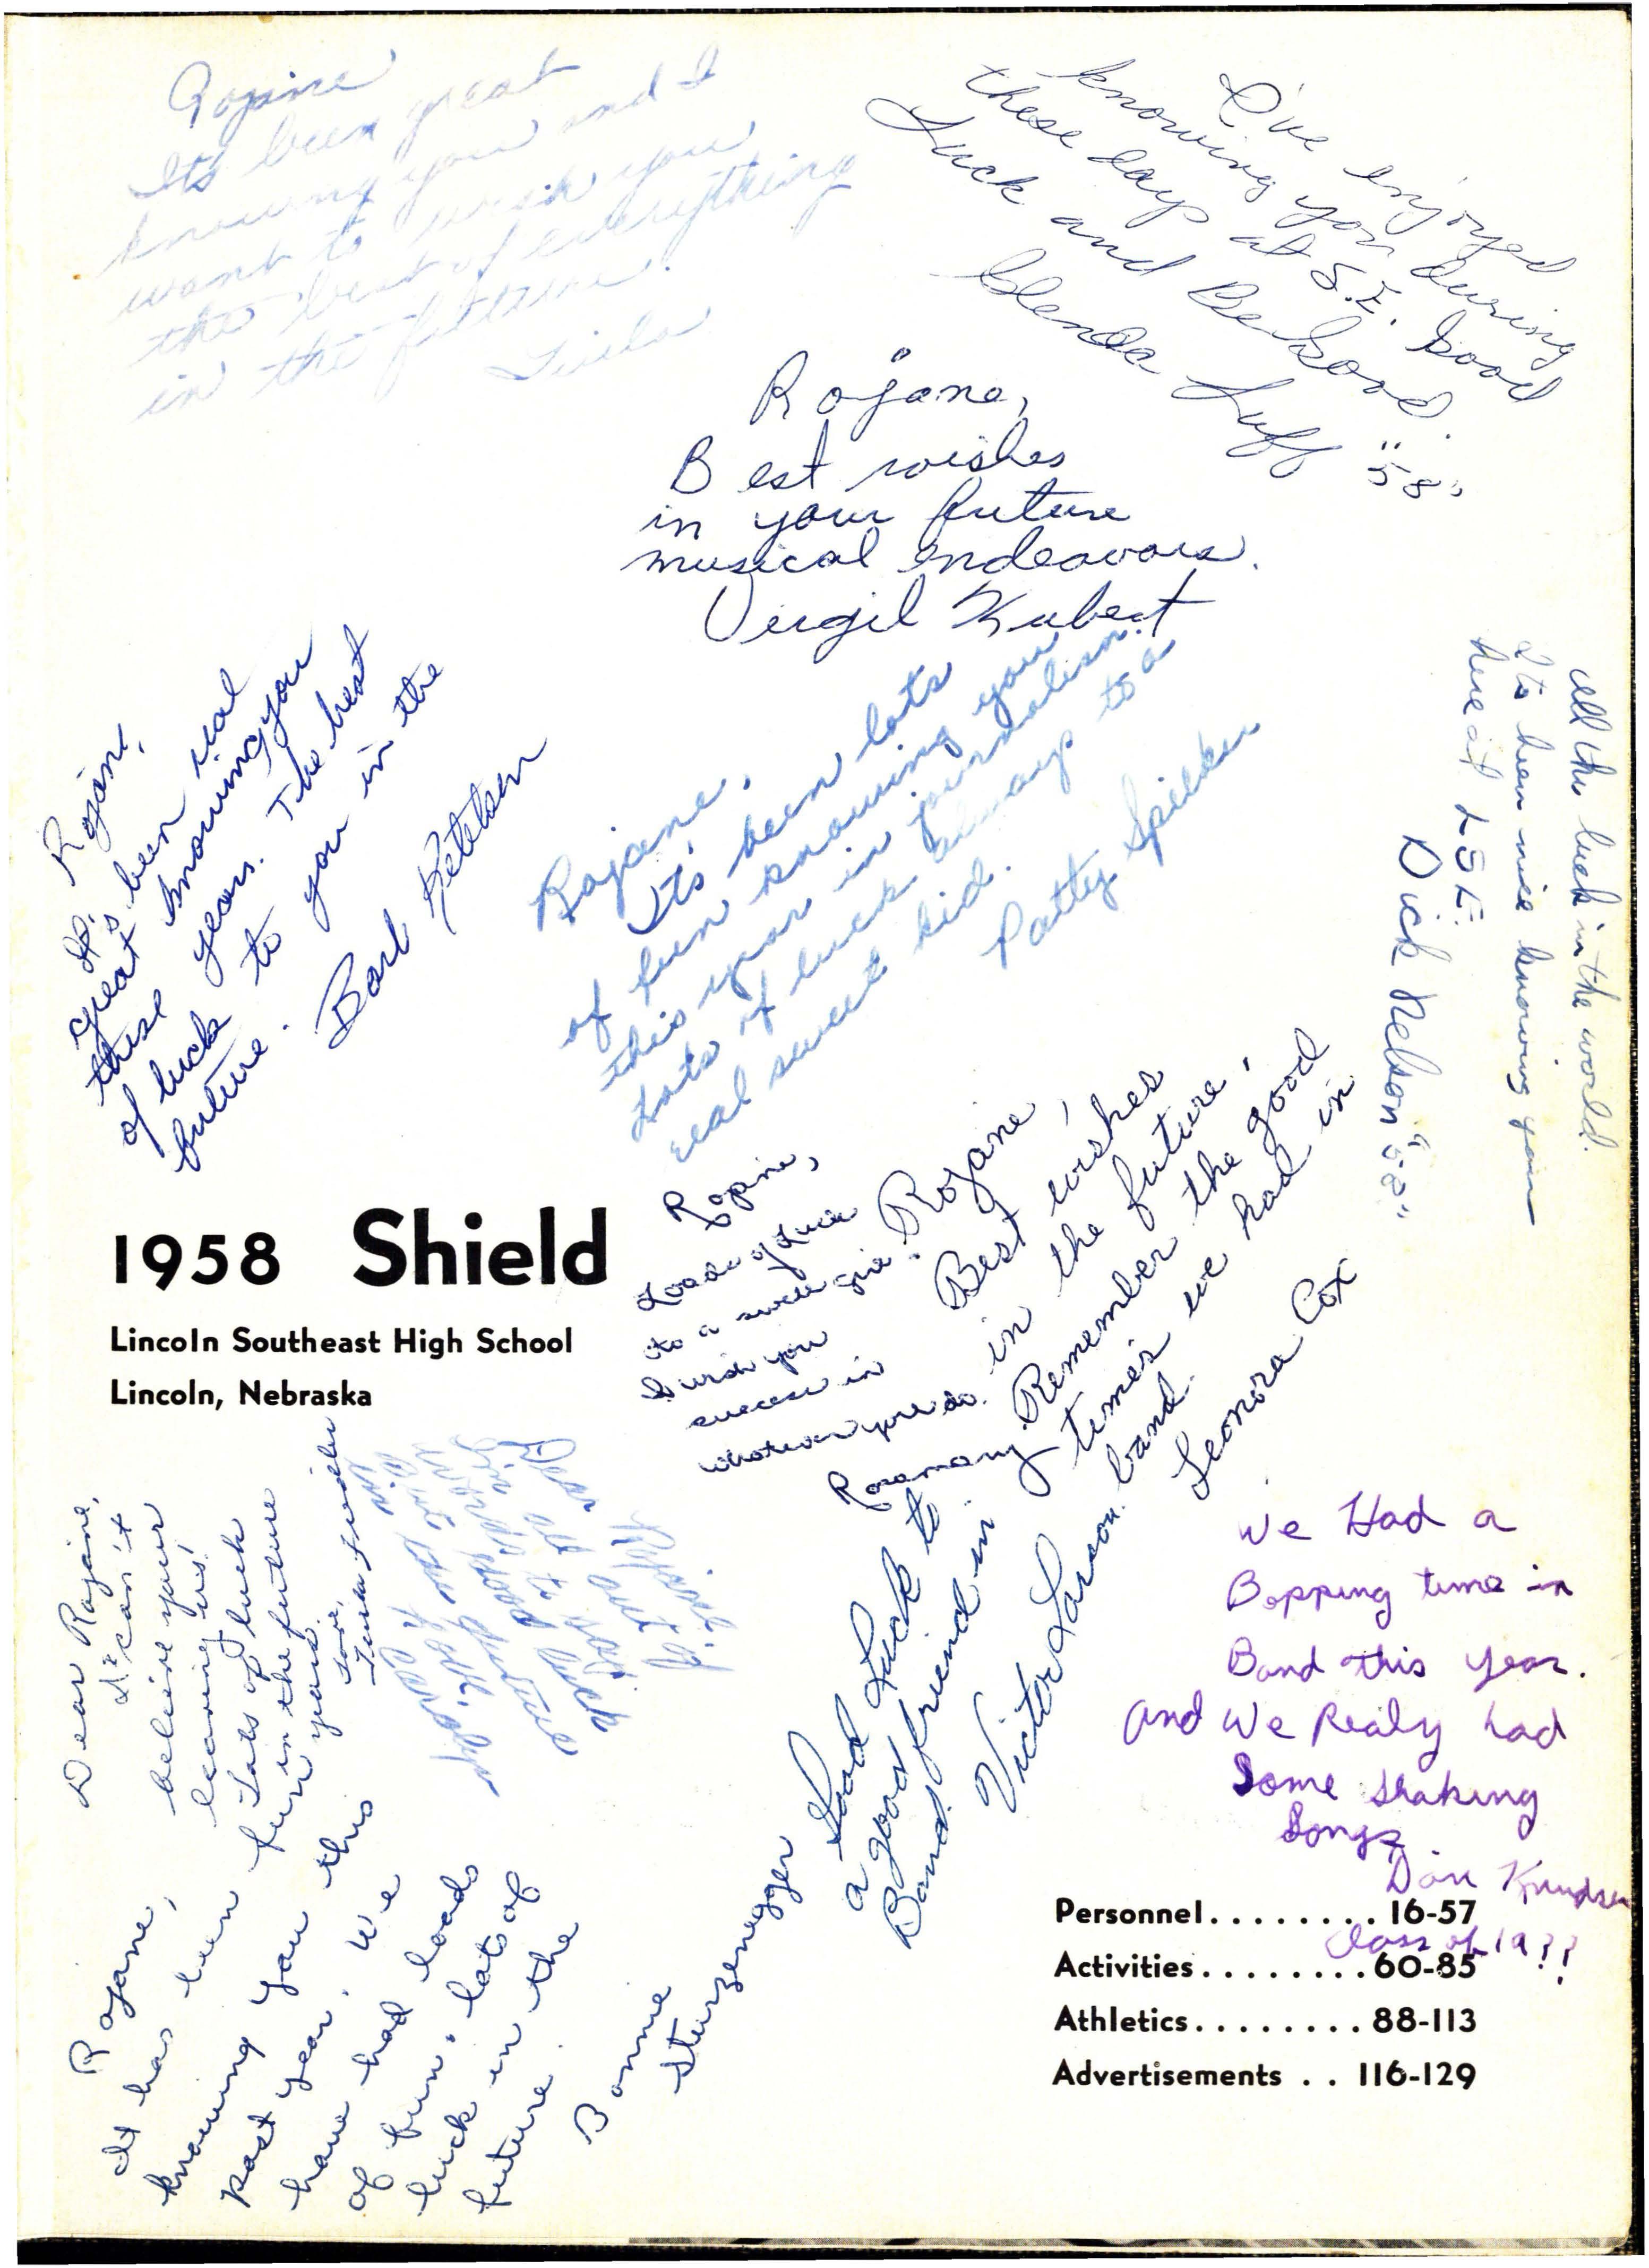 Rojane
Its been great
knowing you and I
want to wish you
the best of everything
in the future.
I've enjoyed
knowing you during
these days at S.E. Good
Luck and Be Good.
Glenda Luff "58"
Rojane,
Best wishes
in your future
musical endeavors.
Virgil Kubert
Rojane,
It's been real
great knowing you
these years. The best
of luck to you in the
future.
Barb Petelsen
Rojane,
It's been lots
of fun knowing you
this year in journalism.
Lots of luck always to a
real sweet kid.
Patty Spilker
All the luck in the world.
Its been nice knowing you
here at L.S.E.
Dick Nelson "58"
1958 Shield
Lincoln Southeast High School
Lincoln, Nebraska
Rojane,
Loads of Luck
to a swell girl.
I wish you
success in
whatever you do.
Rosemary
Rojane,
Best wishes
in the future.
Remember the good
times we had in
band.
Leonora Cox
Dear Rojane,
I can't
believe your
leaving us!
Lots of luck
in the future
years.
Love,
Good Luck to
a good friend in
Band.
Victor Larson
We Had a
Bopping time in
Band this year.
and We Realy had
Some Shaking
Songs
Dan Knudsen
Class of 19??
Rojane,
It has been fun
knowing you this
past year. We
have had loads
of fun. Lots of
luck in the
future.
Bonnie
Sturzenegger
Personnel........ 16-57
Activities........ 60-85
Athletics........ 88-113
Advertisements .. 116-129